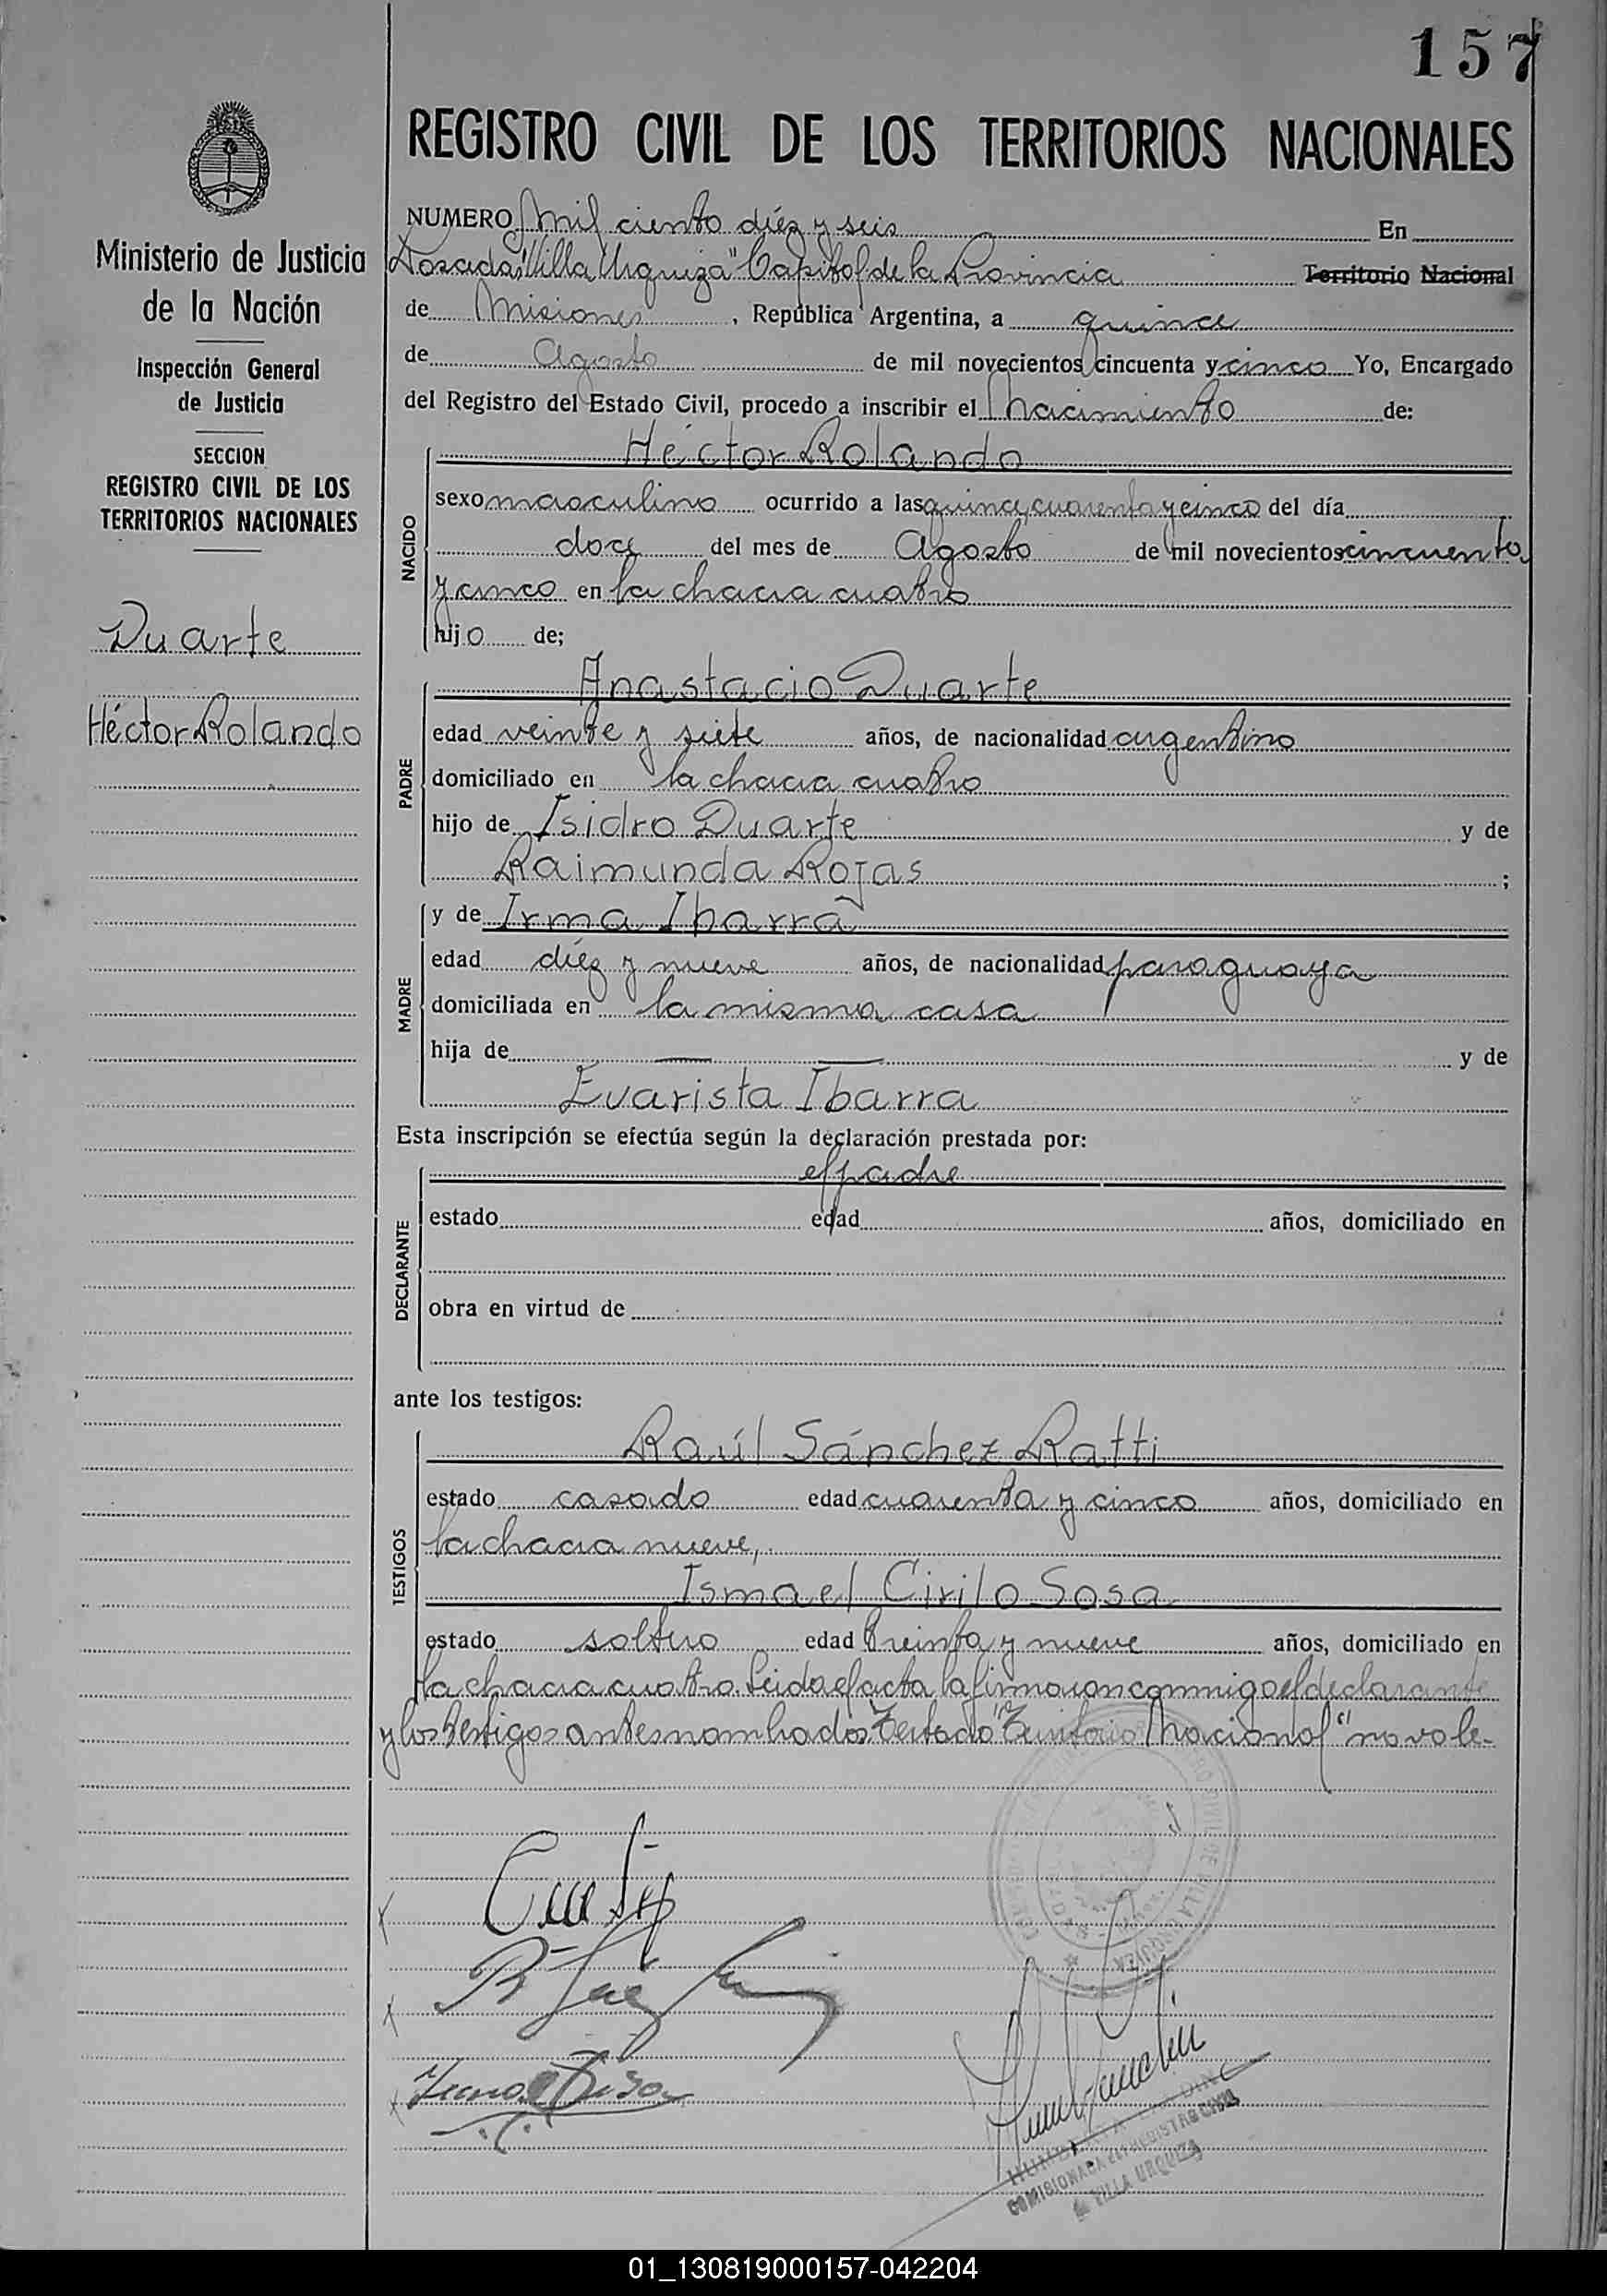 157
REGISTRO CIVIL DE LOS TERRITORIOS NACIONALES
Ministerio de Justicia
de la Nación
Inspección General
de Justicia
SECCION
REGISTRO CIVIL DE LOS
TERRITORIOS NACIONALES
Duarte
Héctor Rolando
NUMERO mil ciento diéz y seis En
Posadas "Villa Urquiza" Capital de la Provincia Territorio Nacional
de Misiones, República Argentina, a quince
de Agosto de mil novecientos cincuenta y cinco Yo, Encargado
del Registro del Estado Civil, procedo a inscribir el nacimiento de:
NACIDO
Héctor Rolando
sexo masculino ocurrido a las quince, cuarenta y cinco del día
doce del mes de Agosto de mil novecientos cincuenta
y cinco en la chacra cuatro
hijo de;
PADRE
Anastacio Duarte
edad veinte y siete años, de nacionalidad argentino
domiciliado en la chacra cuatro
hijo de Isidro Duarte y de
Raimunda Rojas ;
MADRE
y de Irma Ibarra
edad diéz y nueve años, de nacionalidad paraguaya
domiciliada en la misma casa
hija de — — y de
Evarista Ibarra
Esta inscripción se efectúa según la declaración prestada por:
DECLARANTE
el padre
estado edad años, domiciliado en
obra en virtud de
ante los testigos:
TESTIGOS
Raúl Sánchez Ratti
estado casado edad cuarenta y cinco años, domiciliado en
la chacra nueve,
Ismael Cirilo Sosa
estado soltero edad treinta y nueve años, domiciliado en
la chacra cuatro. Leida el acta la firma con conmigo el declarante
y los testigos antes nombrados. Testado "Territorio Nacional" no vale-
COMISIONADA DEL REGISTRO CIVIL
VILLA URQUIZA
01_130819000157-042204